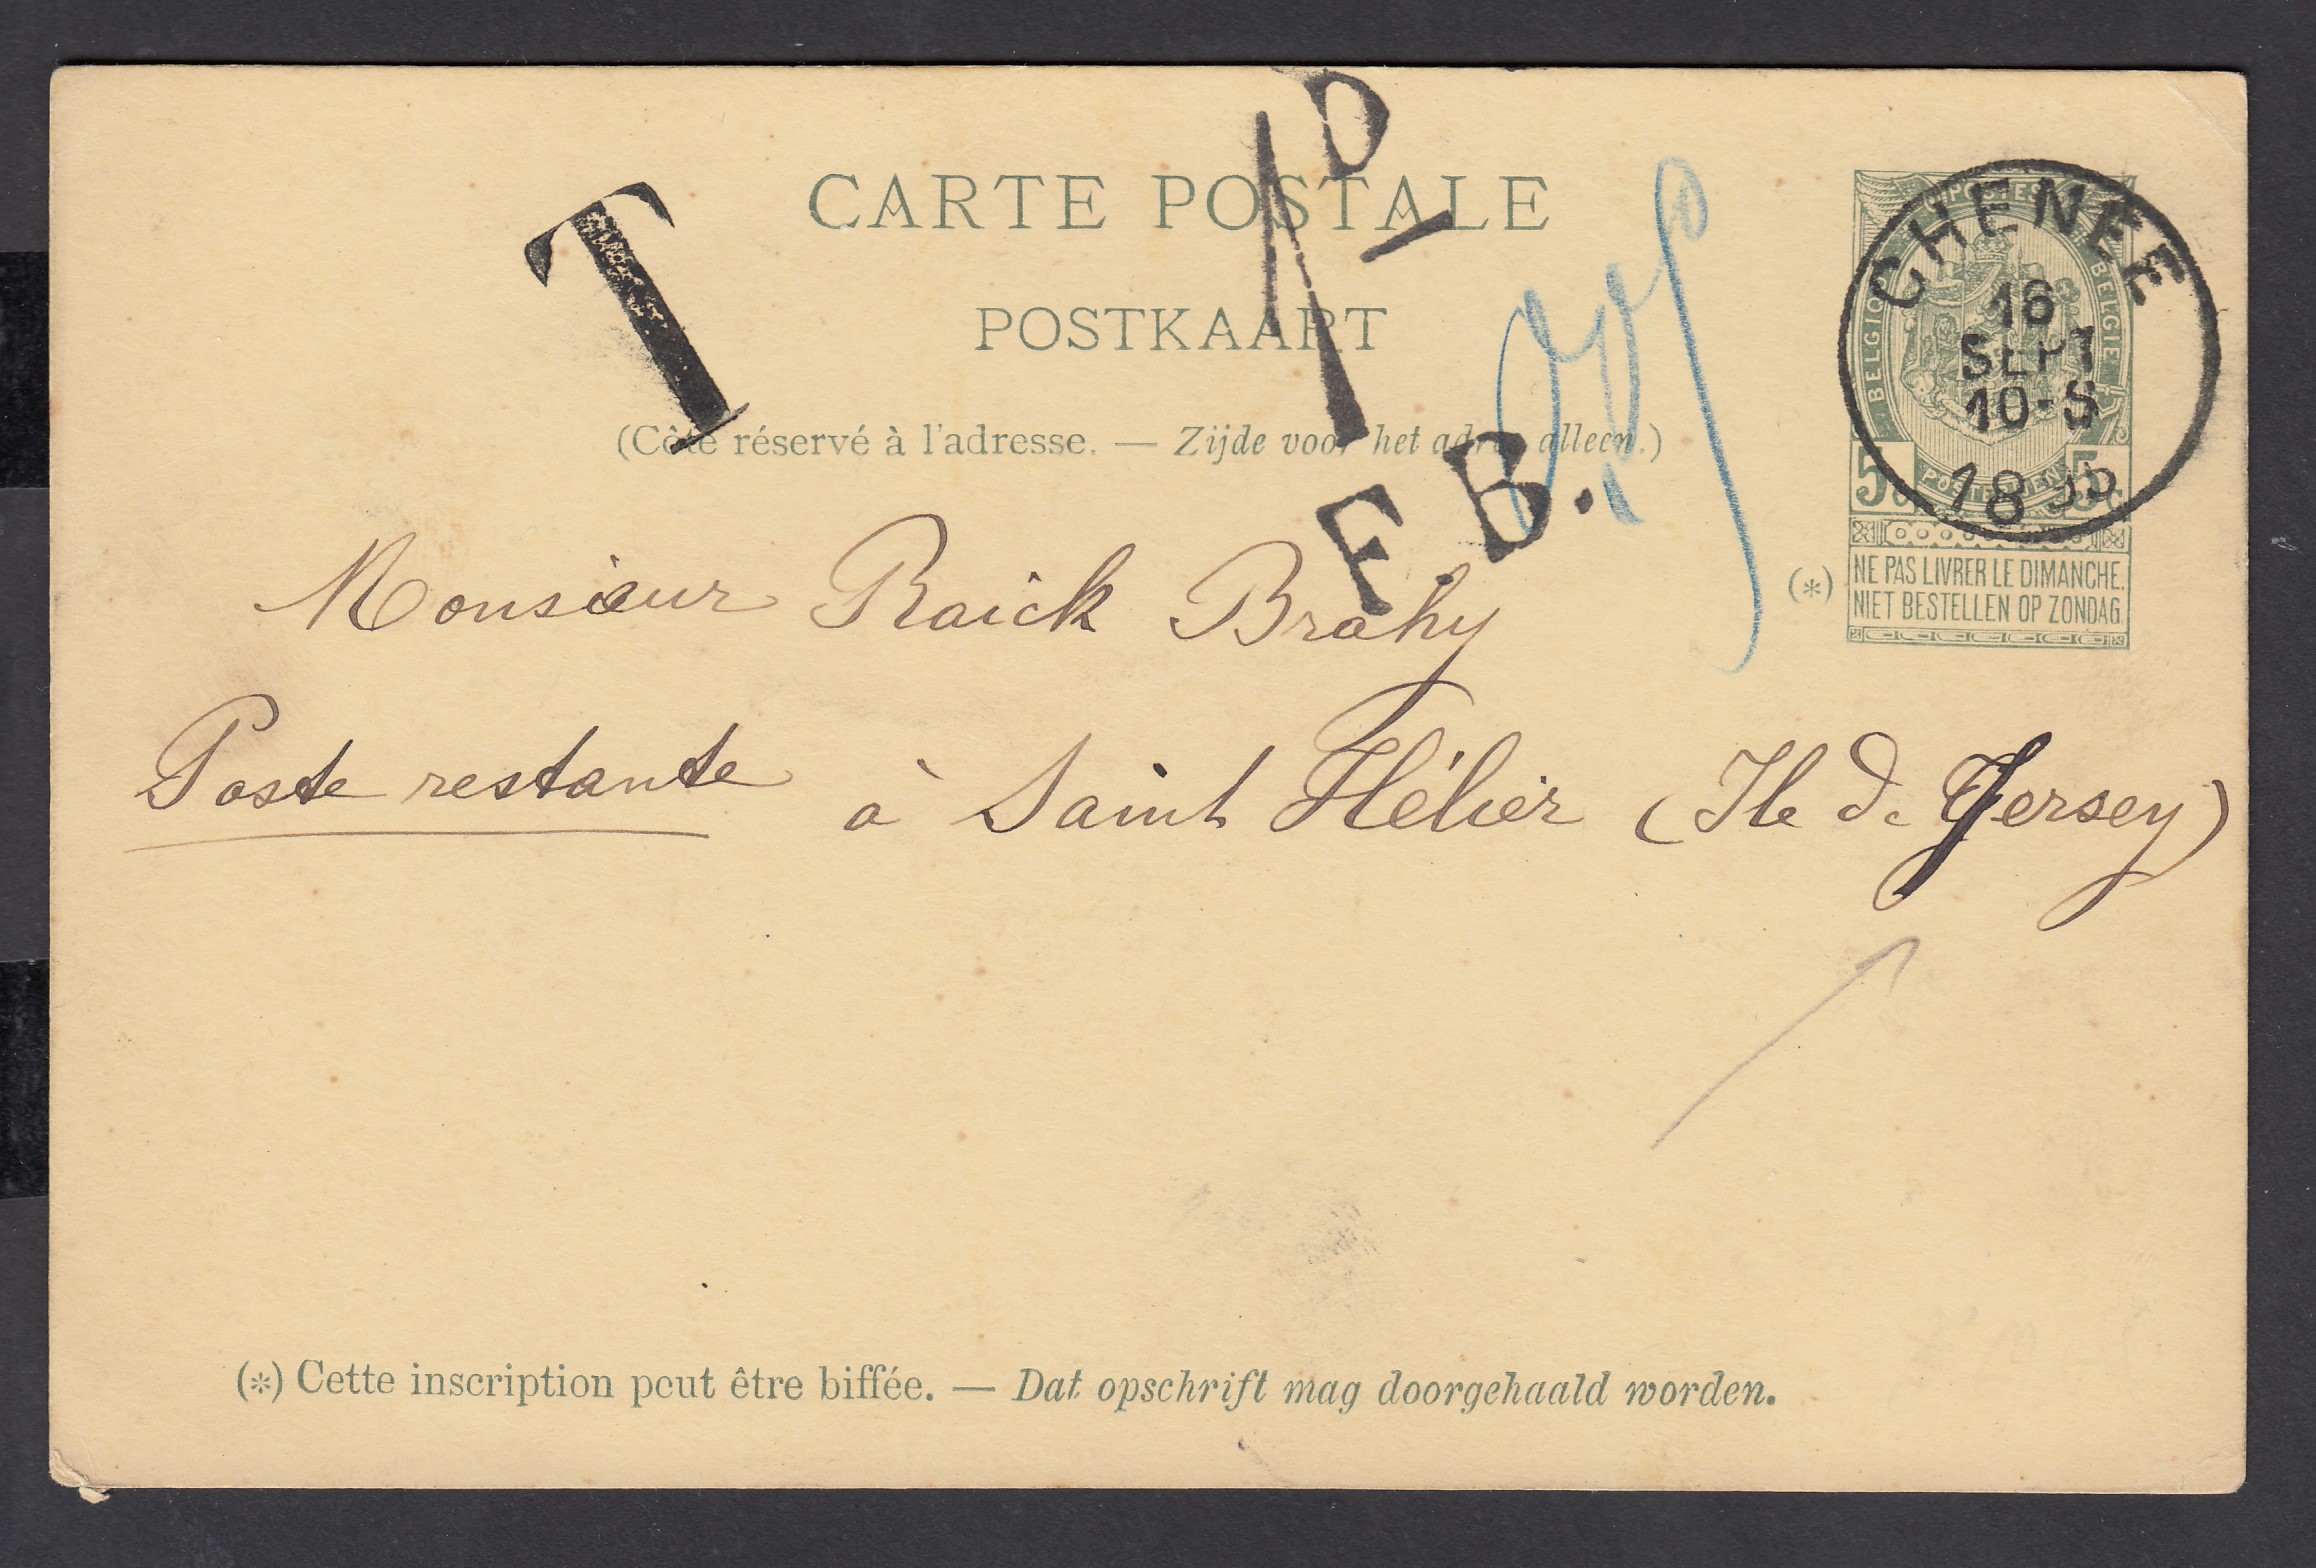 T
1D
F.B.
CARTE POSTALE
POSTKAART
(Côté réservé à l'adresse. — Zijde voor het adres alleen.)
CHENEE
16
SEPT
10-S
1895
BELGIQUE
BELGIË
5c
5c
(*)
NE PAS LIVRER LE DIMANCHE.
NIET BESTELLEN OP ZONDAG.
Monsieur Raick Brahy
Poste restante à Saint Hélier (Ile de Jersey)
(*) Cette inscription peut être biffée. — Dat opschrift mag doorgehaald worden.